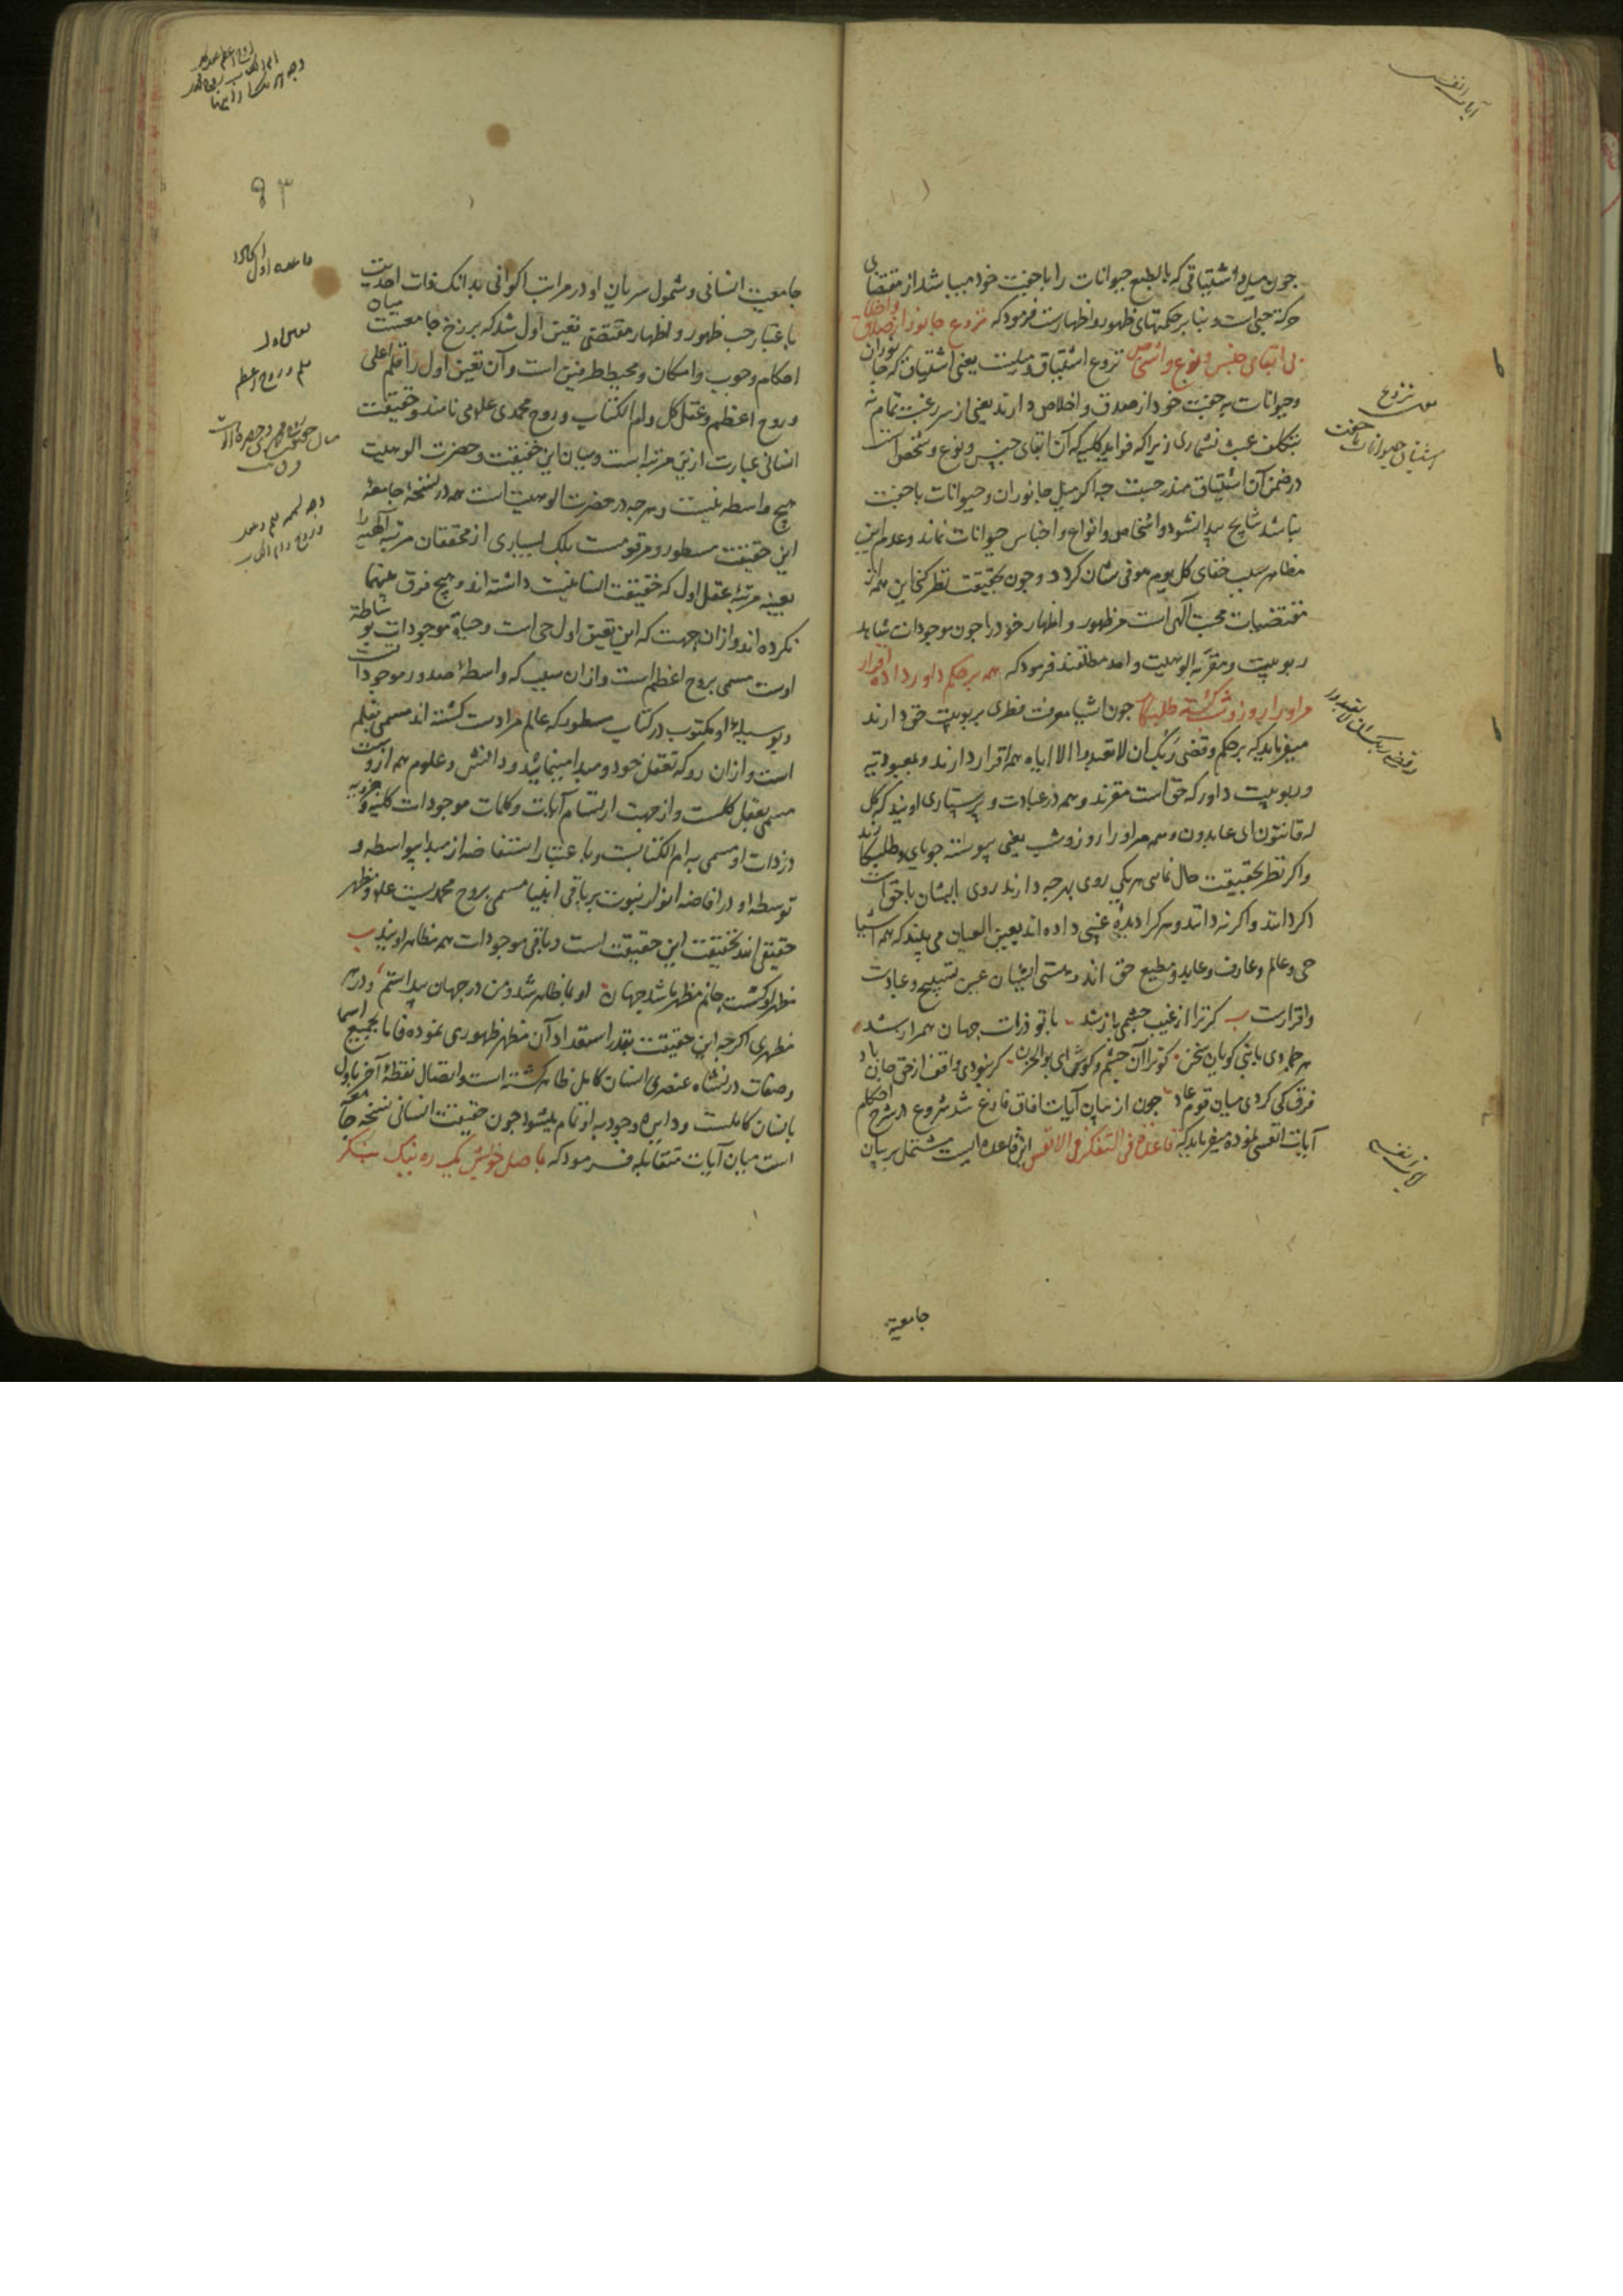 چون میل و اشتیاقی که بالطبع حیوانات را با جفت خود میباشد از مقتضای
حرکة حبی است و بنا بر حکمتهای ظهور و اظهارست فرمود که نزوع جانور از صدق و اخلاص
پی ابقای جنس و نوع و اشخاص نزوع اشتیاق و میلست یعنی اشتیاق که جانوران
و حیوانات بر جفت خود از صدق و اخلاص دارند یعنی از سر رغبت تمام نه
بتکلف عبث نشماری زیرا که فواید کلیه که آن ابقای جنس و نوع و شخص است
در ضمن آن اشتیاق مندرجست چه اگر میل جانوران و حیوانات با جفت
نباشد نتایج پیدا نشود و اشخاص و انواع و اجناس حیوانات نماند و عدم این
مظاهر سبب خفای کل یوم هو فی شان گردد و چون بحقیقت نظر کنی این همه از
مقتضیات محبت الهی است مر ظهور و اظهار خود را چون موجودات شاهد
ربوبیت و مقر به الوهیت واحد مطلقند فرمود که همه بر حکم داور داده اقرار
مر او را روز و شب گشته طلبکار چون اشیا معرفت فطری بربوبیت حق دارند
میفرماید که بر حکم و قضی ربک ان لا تعبدوا الا ایاه همه اقرار دارند و بمعبودیة
و ربوبیت داور که حق است مقرند و همه در عبادت و پرستاری اویند که کل
له قانتون ای عابدون و همه مر او را روز و شب یعنی پیوسته جویای و طلبکارند
و اگر نظر بحقیقت حال نمایی هر یکی روی بهر چه دارند روی ایشان با حق است
اگر دانند و اگر ندانند و هر کرا دیده غیبی داده اند بعین العیان می بیند که همه اشیا
حی و عالم و عارف و عابد و مطیع حق اند و هستی ایشان عین تسبیح و عبادت
و اقرارست گر ترا از غیب چشمی باز شد با تو ذرات جهان همراز شد
هر جمادی با نبی گویان سخن کو ترا آن چشم و گوش ای بوالحزن گر نبودی واقف از حق جان باد
فرق کی کردی میان قوم عاد چون از بیان آیات افاق فارغ شد شروع در شرح احکام
آیات انفسی نموده میفرماید که قاعدة فی التفکر فی الانفس این قاعده ایست مشتمل بر بیان
جامعیة
آیات انفسی
نزوع
اشتیاق حیوانات با جفت
و قضی ربک ان لا تعبدوا
جامعیت انسانی و شمول سریان او در مراتب اکوانی بدانک ذات احدیت
باعتبار حب ظهور و اظهار مقتضی تعین اول شد که برزخ جامعست میان
احکام وجوب و امکان و محیط طرفین است و آن تعین اول را قلم اعلی
و روح اعظم و عقل کل و ام الکتاب و روح محمدی علامی نامند و حقیقت
انسانی عبارت ازین مرتبه است و میان این حقیقت و حضرت الوهیت
هیچ واسطه نیست و هر چه در حضرت الوهیت است همه در نسخه جامعه
این حقیقت مسطور و مرقومست بلک بسیاری از محققان مرتبه الهیه را
بعینه مرتبه عقل اول که حقیقت انسانیت داشته اند و هیچ فرق بینهما
نکرده اند و از ان جهت که این تعین اول حی است و حیاة موجودات بوساطة
اوست مسمی بروح اعظم است و از ان سبب که واسطه صدور موجوداتست
و بوسیله او مکتوب در کتاب مسطور که عالم مرادست گشته اند مسمی بقلم
است و از ان رو که تعقل خود و مبدا مینماید و دانش و علوم همه ازوست
مسمی بعقل کلست و از جهت ارتسام آیات و کلمات موجودات کلیه و جزویه
در ذات او مسمی به ام الکتابست و باعتبار استفاضه از مبدا بیواسطه و
توسطه او در افاضه انوار نبوت بر باقی انبیا مسمی بروح محمدیست علم و مظهر
حقیقی اند بحقیقت این حقیقت است و باقی موجودات همه مظاهر اویند
مظهر او گشت جانم مظهر باشد جهان او بما ظاهر شد و من در جهان پیداستم و در هر
مظهری اگرچه این حقیقت بقدر استعداد آن مظهر ظهوری نموده فاما بجمیع اسما
و صفات در نشاه عنصری انسان کامل ظاهر گشته است و اتصال نقطه آخر باول
بانسان کاملست و دایره وجود به او تمام میشود چون حقیقت انسانی نسخه جامعه
است میان آیات متقابله فرمود که باصل خویش یک ره نیک بنگر
۹۳
تعین اول
قلم و روح اعظم